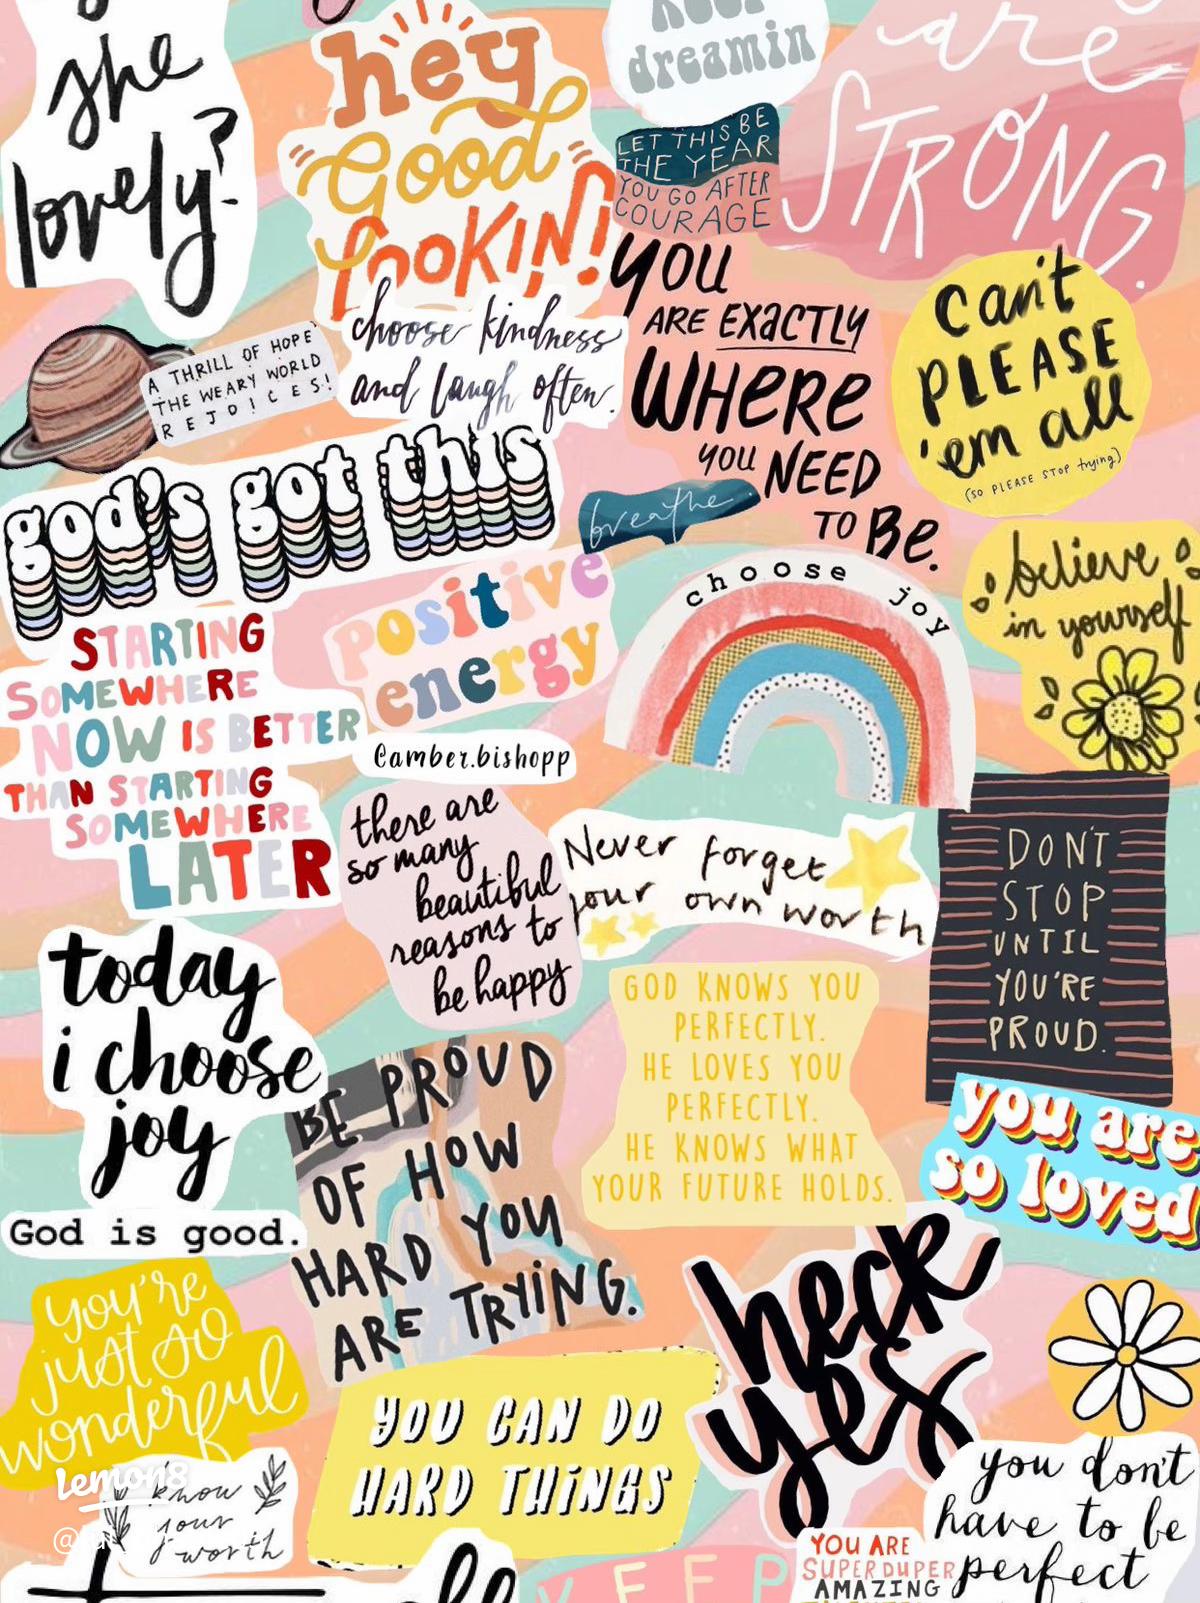 she
lovely?
hey
Good
lookin!
dreamin
are
STRONG.
LET THIS BE
THE YEAR
YOU GO AFTER
COURAGE
YOU
ARE EXACTLY
WHERE
YOU NEED
TO BE.
can't
PLEASE
'em all
(SO PLEASE STOP trying)
A THRILL OF HOPE
THE WEARY WORLD
REJOICES!
choose kindness
and laugh often.
god's got this
breathe.
positive
energy
choose joy
believe
in yourself
STARTING
SOMEWHERE
NOW IS BETTER
THAN STARTING
SOMEWHERE
LATER
@amber.bishopp
there are
so many
beautiful
reasons to
be happy
Never forget
your own worth
DON'T
STOP
UNTIL
YOU'RE
PROUD.
today
i choose
joy
GOD KNOWS YOU
PERFECTLY.
HE LOVES YOU
PERFECTLY.
HE KNOWS WHAT
YOUR FUTURE HOLDS.
BE PROUD
OF HOW
HARD YOU
ARE TRYING.
you are
so loved
God is good.
you're
just so
wonderful
heck
yes
YOU CAN DO
HARD THINGS
Lemon8
know
your
worth
you don't
have to be
perfect
YOU ARE
SUPER DUPER
AMAZING